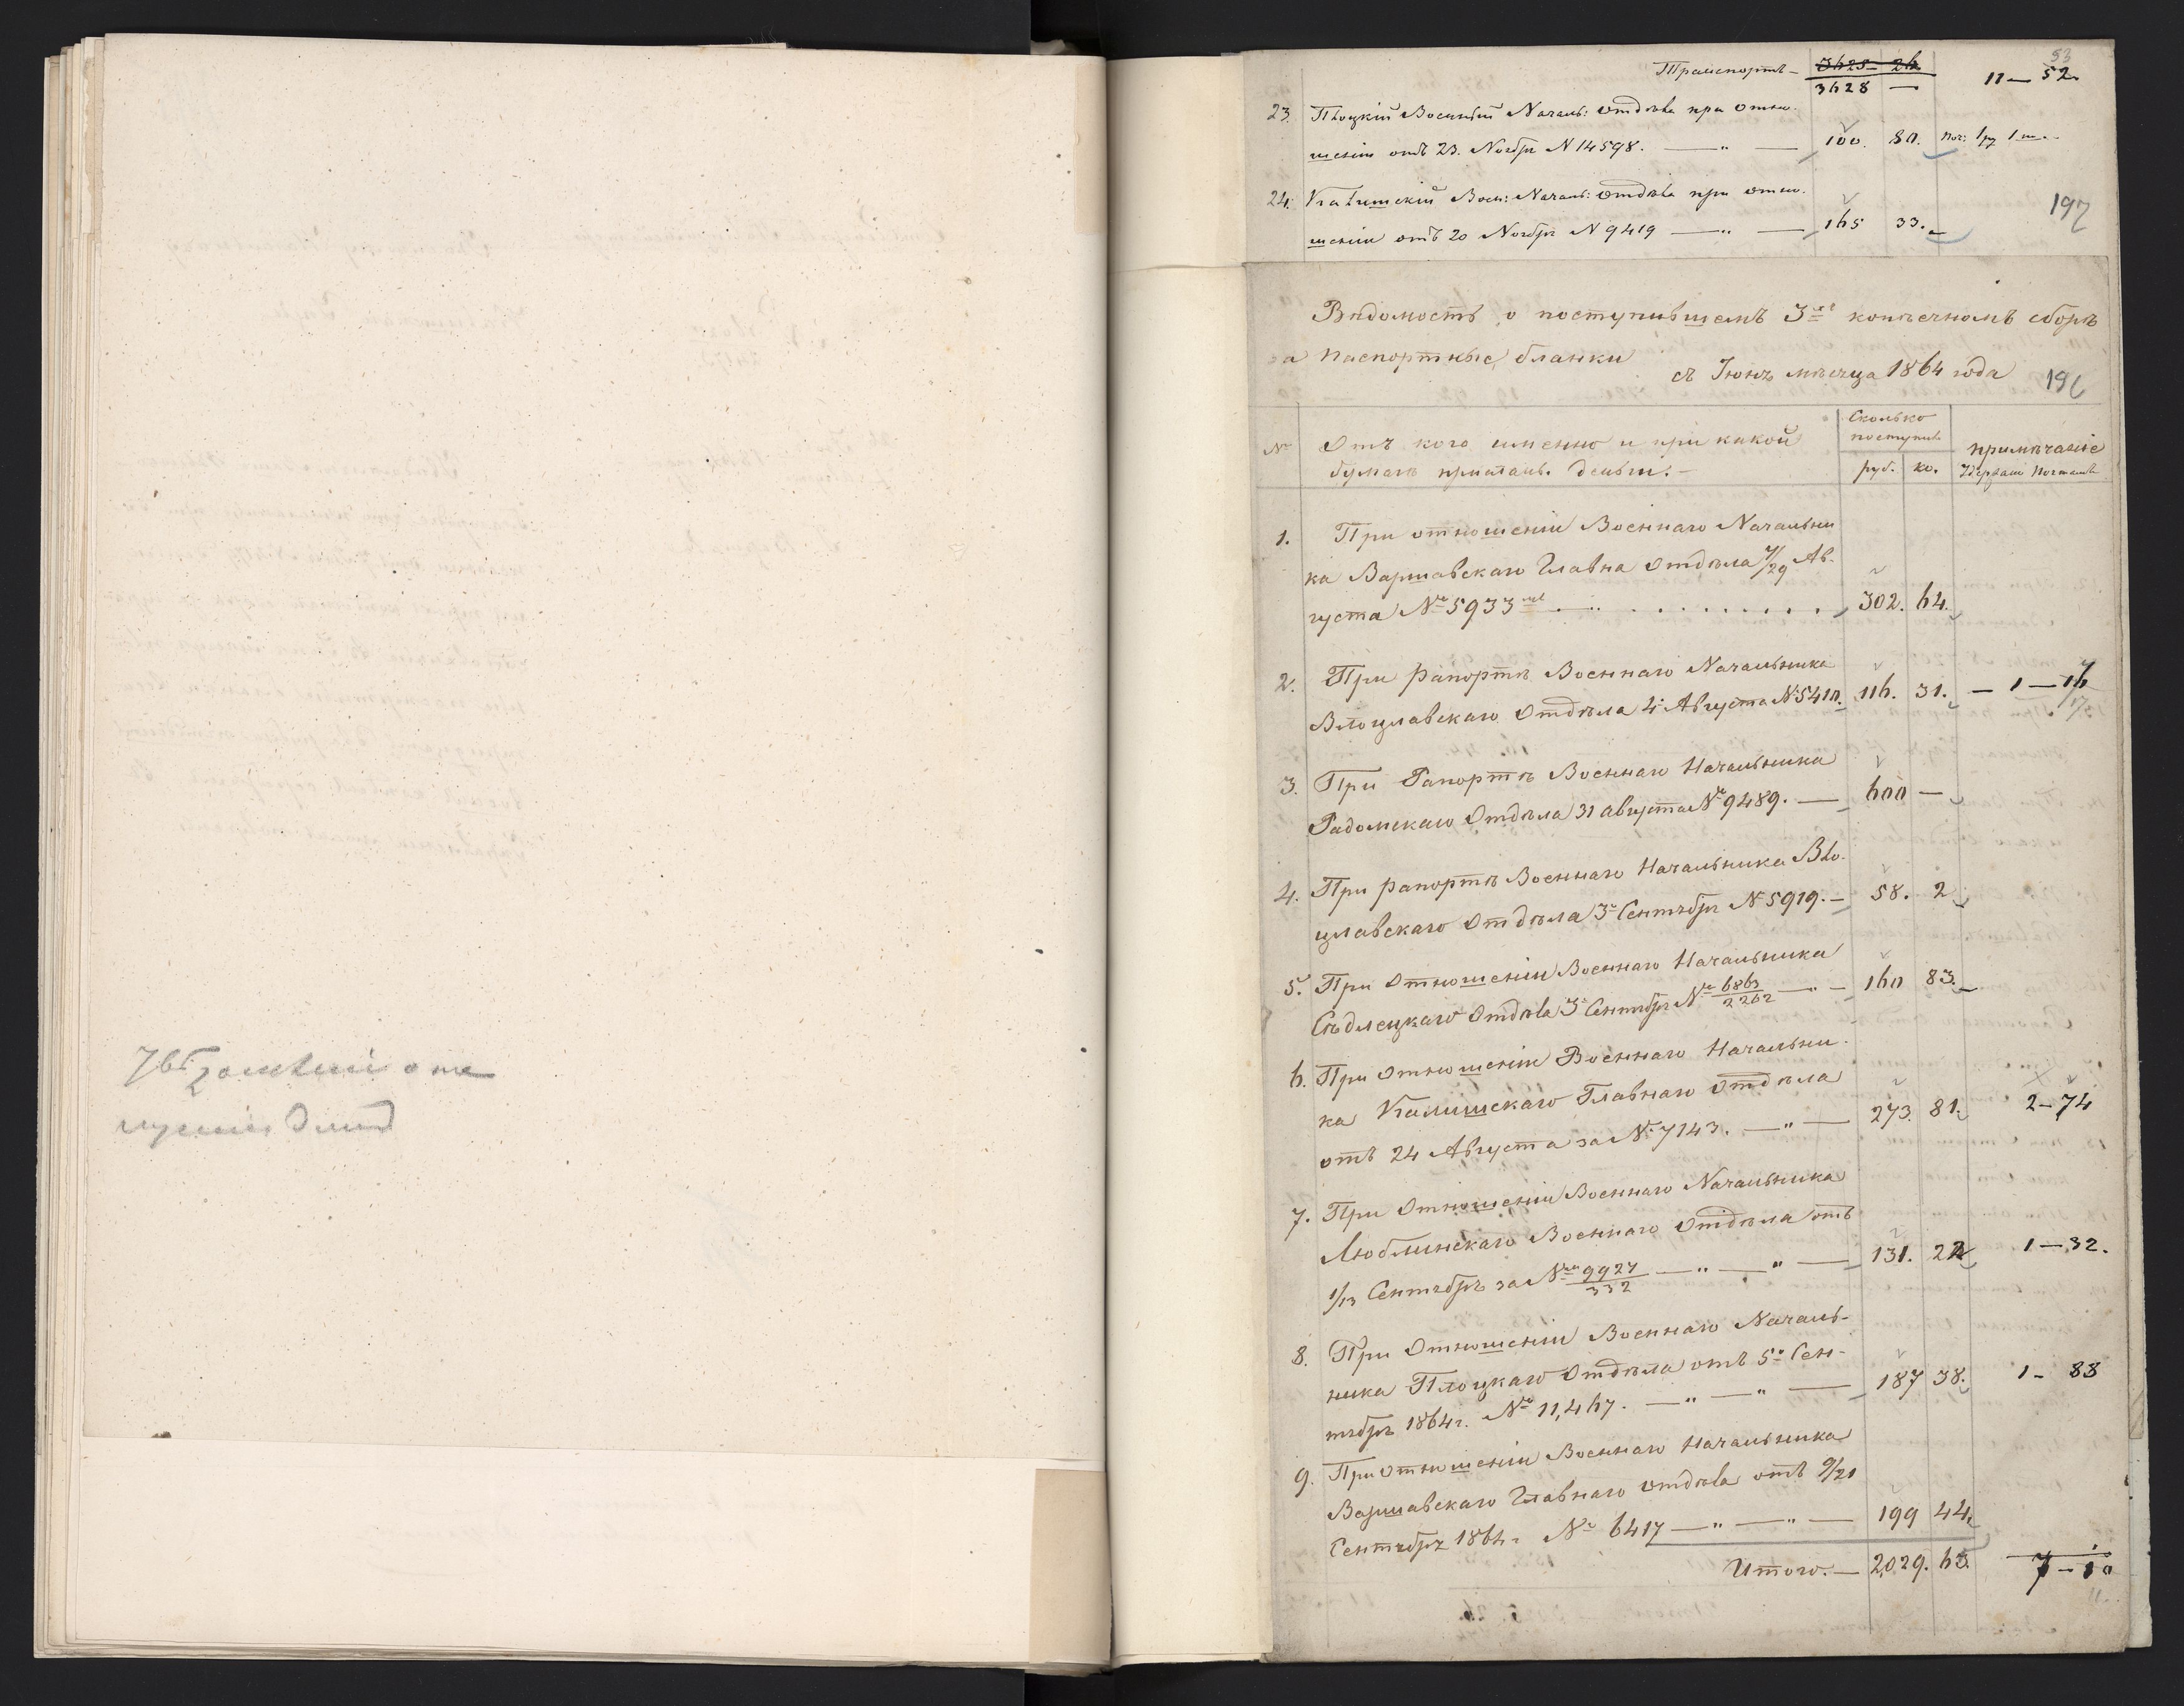 Транспортъ — 3625 26 11 — 52 53
3628 —
23. Плоцкій Военный Началь: Отдѣла при отно-
шеніи отъ 23. Ноября N 14598. — " — 100. 80. Поч: 1 р 1 ш.
24. Калишскій Воен: Началь: Отдѣла при отно-
шеніи отъ 20 Ноября N 9419 — " — 165 33.
197
Вѣдомость о поступившемъ 3хъ копѣечномъ сборѣ
за паспортные бланки
съ Іюнь мѣсяца 1864 года 196
№ Отъ кого именно и при какой Сколько поступило примѣчаніе
бумагѣ присланы деньги. — руб. ко. Удержано Почтамт.
1. При отношеніи Военнаго Начальни
ка Варшавскаго Главна Отдѣла 7/29 Ав-
густа № 5933 . — " . . . . . . . . 302. 64.
2. При рапортѣ Военнаго Начальника
Влоцлавскаго Отдѣла 4 Августа № 5410. 116. 31. — 1 — 16 17
3. При Рапортѣ Военнаго Начальника
Радомскаго Отдѣла 31 августа № 9489. — 600 —
4. При рапортѣ Военнаго Начальника Вло-
цлавскаго Отдѣла 3 Сентября № 5919. — 58. 2
5. При Отношеніи Военнаго Начальника
Сѣдлецкаго Отдѣла 3 Сентября № 6863/2262 — " — 160 83.
6. При Отношеніи Военнаго Начальни-
ка Калишскаго Главнаго Отдѣла
отъ 24 Августа за № 7143. — " — 273. 81. 2 — 74
7. При Отношеніи Военнаго Начальника
Люблинскаго Военнаго Отдѣла отъ
1/13 Сентября за № 9927/332 — " — " — 131. 22 1 — 32.
8. При Отношеніи Военнаго Началь-
ника Плоцкаго Отдѣла отъ 5 Сен-
тября 1864 г. № 11,467. — " — " — 187 38. 1 — 88
9. При Отношеніи Военнаго Начальника
Варшавскаго Главнаго отдѣла отъ 9/21
Сентября 1864 г. № 6417 — " — " — 199 44.
Итого. — 2,029. 63. 7 — 10
11.